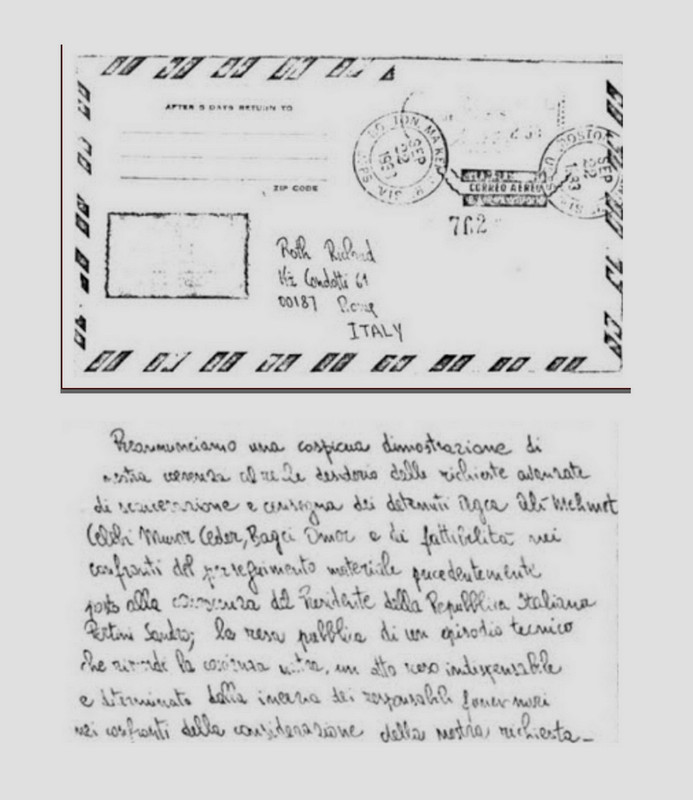 AFTER 5 DAYS RETURN TO
ZIP CODE
BOSTON MA
SEP
22
BOSTON
SEP
22
1983
CORREO AEREO
762
Roth Richard
Via Condotti 61
00187 Rome
ITALY
Preannunciamo una cospicua dimostrazione di
nostra delle richieste avanzate
di scarcerazione e consegna dei detenuti Agca Ali Mehmet
Celebi Omar e di fattibilità nei
confronti del perseguimento materiale precedentemente
posto alla conoscenza del Presidente della Repubblica Italiana
Pertini Sandro; la resa pubblica di un episodio tecnico
che ricordi la un atto reso indispensabile
e determinato dalla inerzia dei responsabili
nei confronti della considerazione della nostra richiesta_